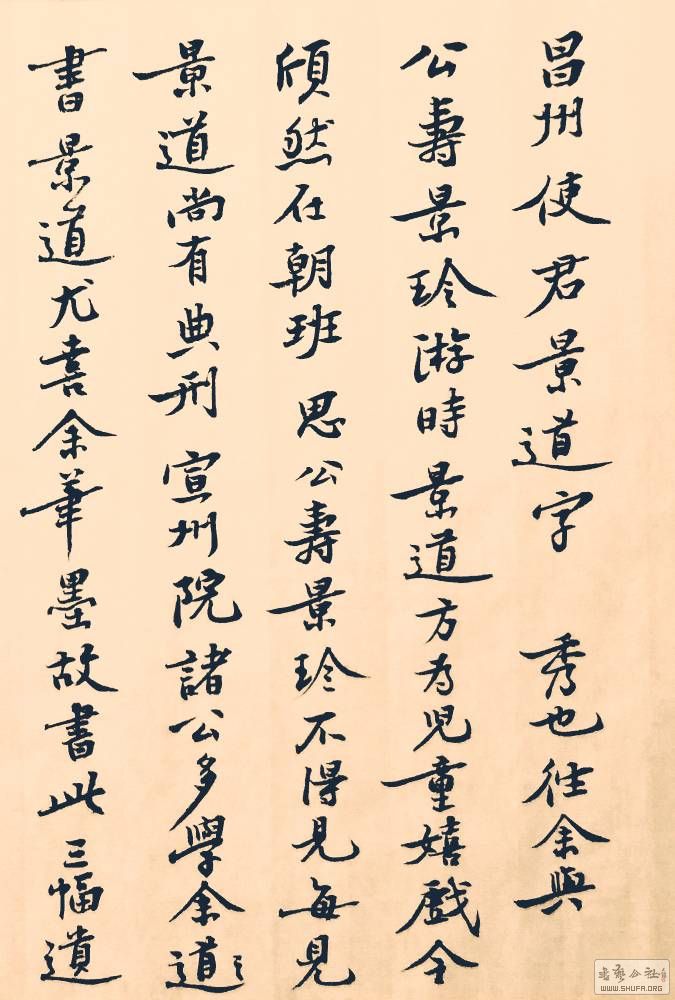 昌州使君景道字 秀也往余與
公壽景珍游時景道方為兒童嬉戲今
頎然在朝班思公壽景珍不得見每見
景道尚有典刑宣州院諸公多學余道〻
書景道尤喜余筆墨故書此三幅遺
書藝公社
WWW.SHUFA.ORG